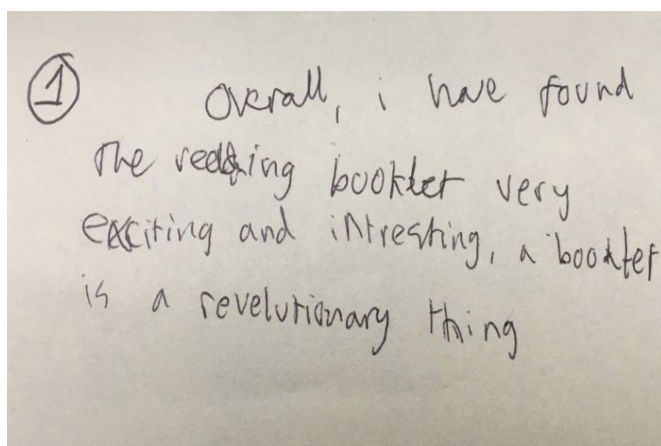 ① Overall, i have found
the reeding booklet very
exciting and intresting, a booklet
is a revelutionary thing